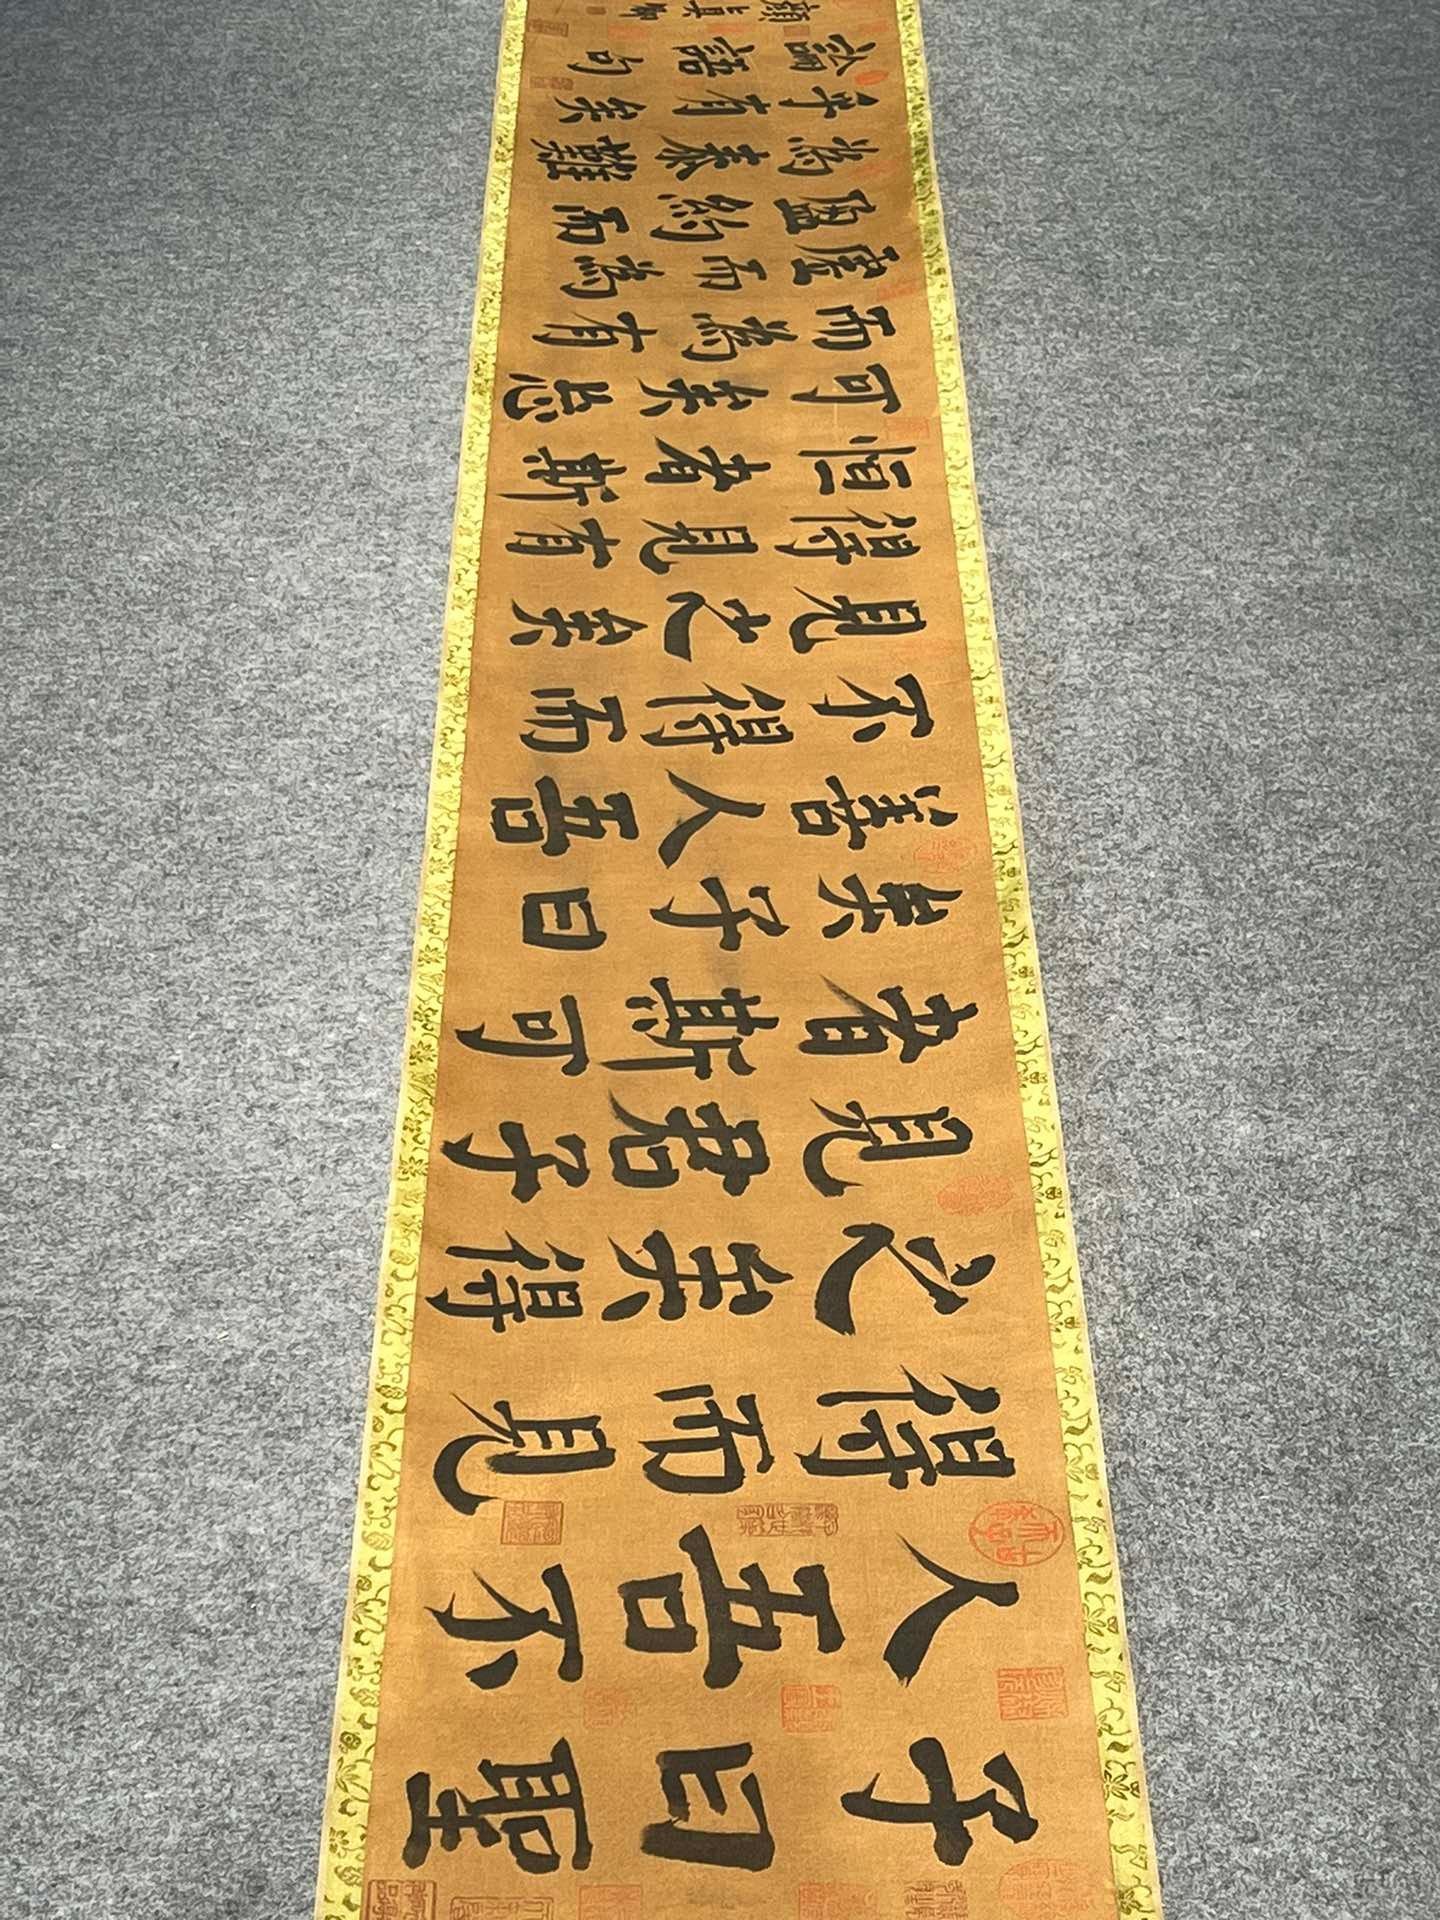 子曰聖
人吾不
得而見
之矣得
見君子
者斯可
矣子曰
善人吾
不得而
見之矣
得見有
恒者斯
可矣
而為有
虛而為
盈約而
為泰難
乎有矣
論語句
顏真卿